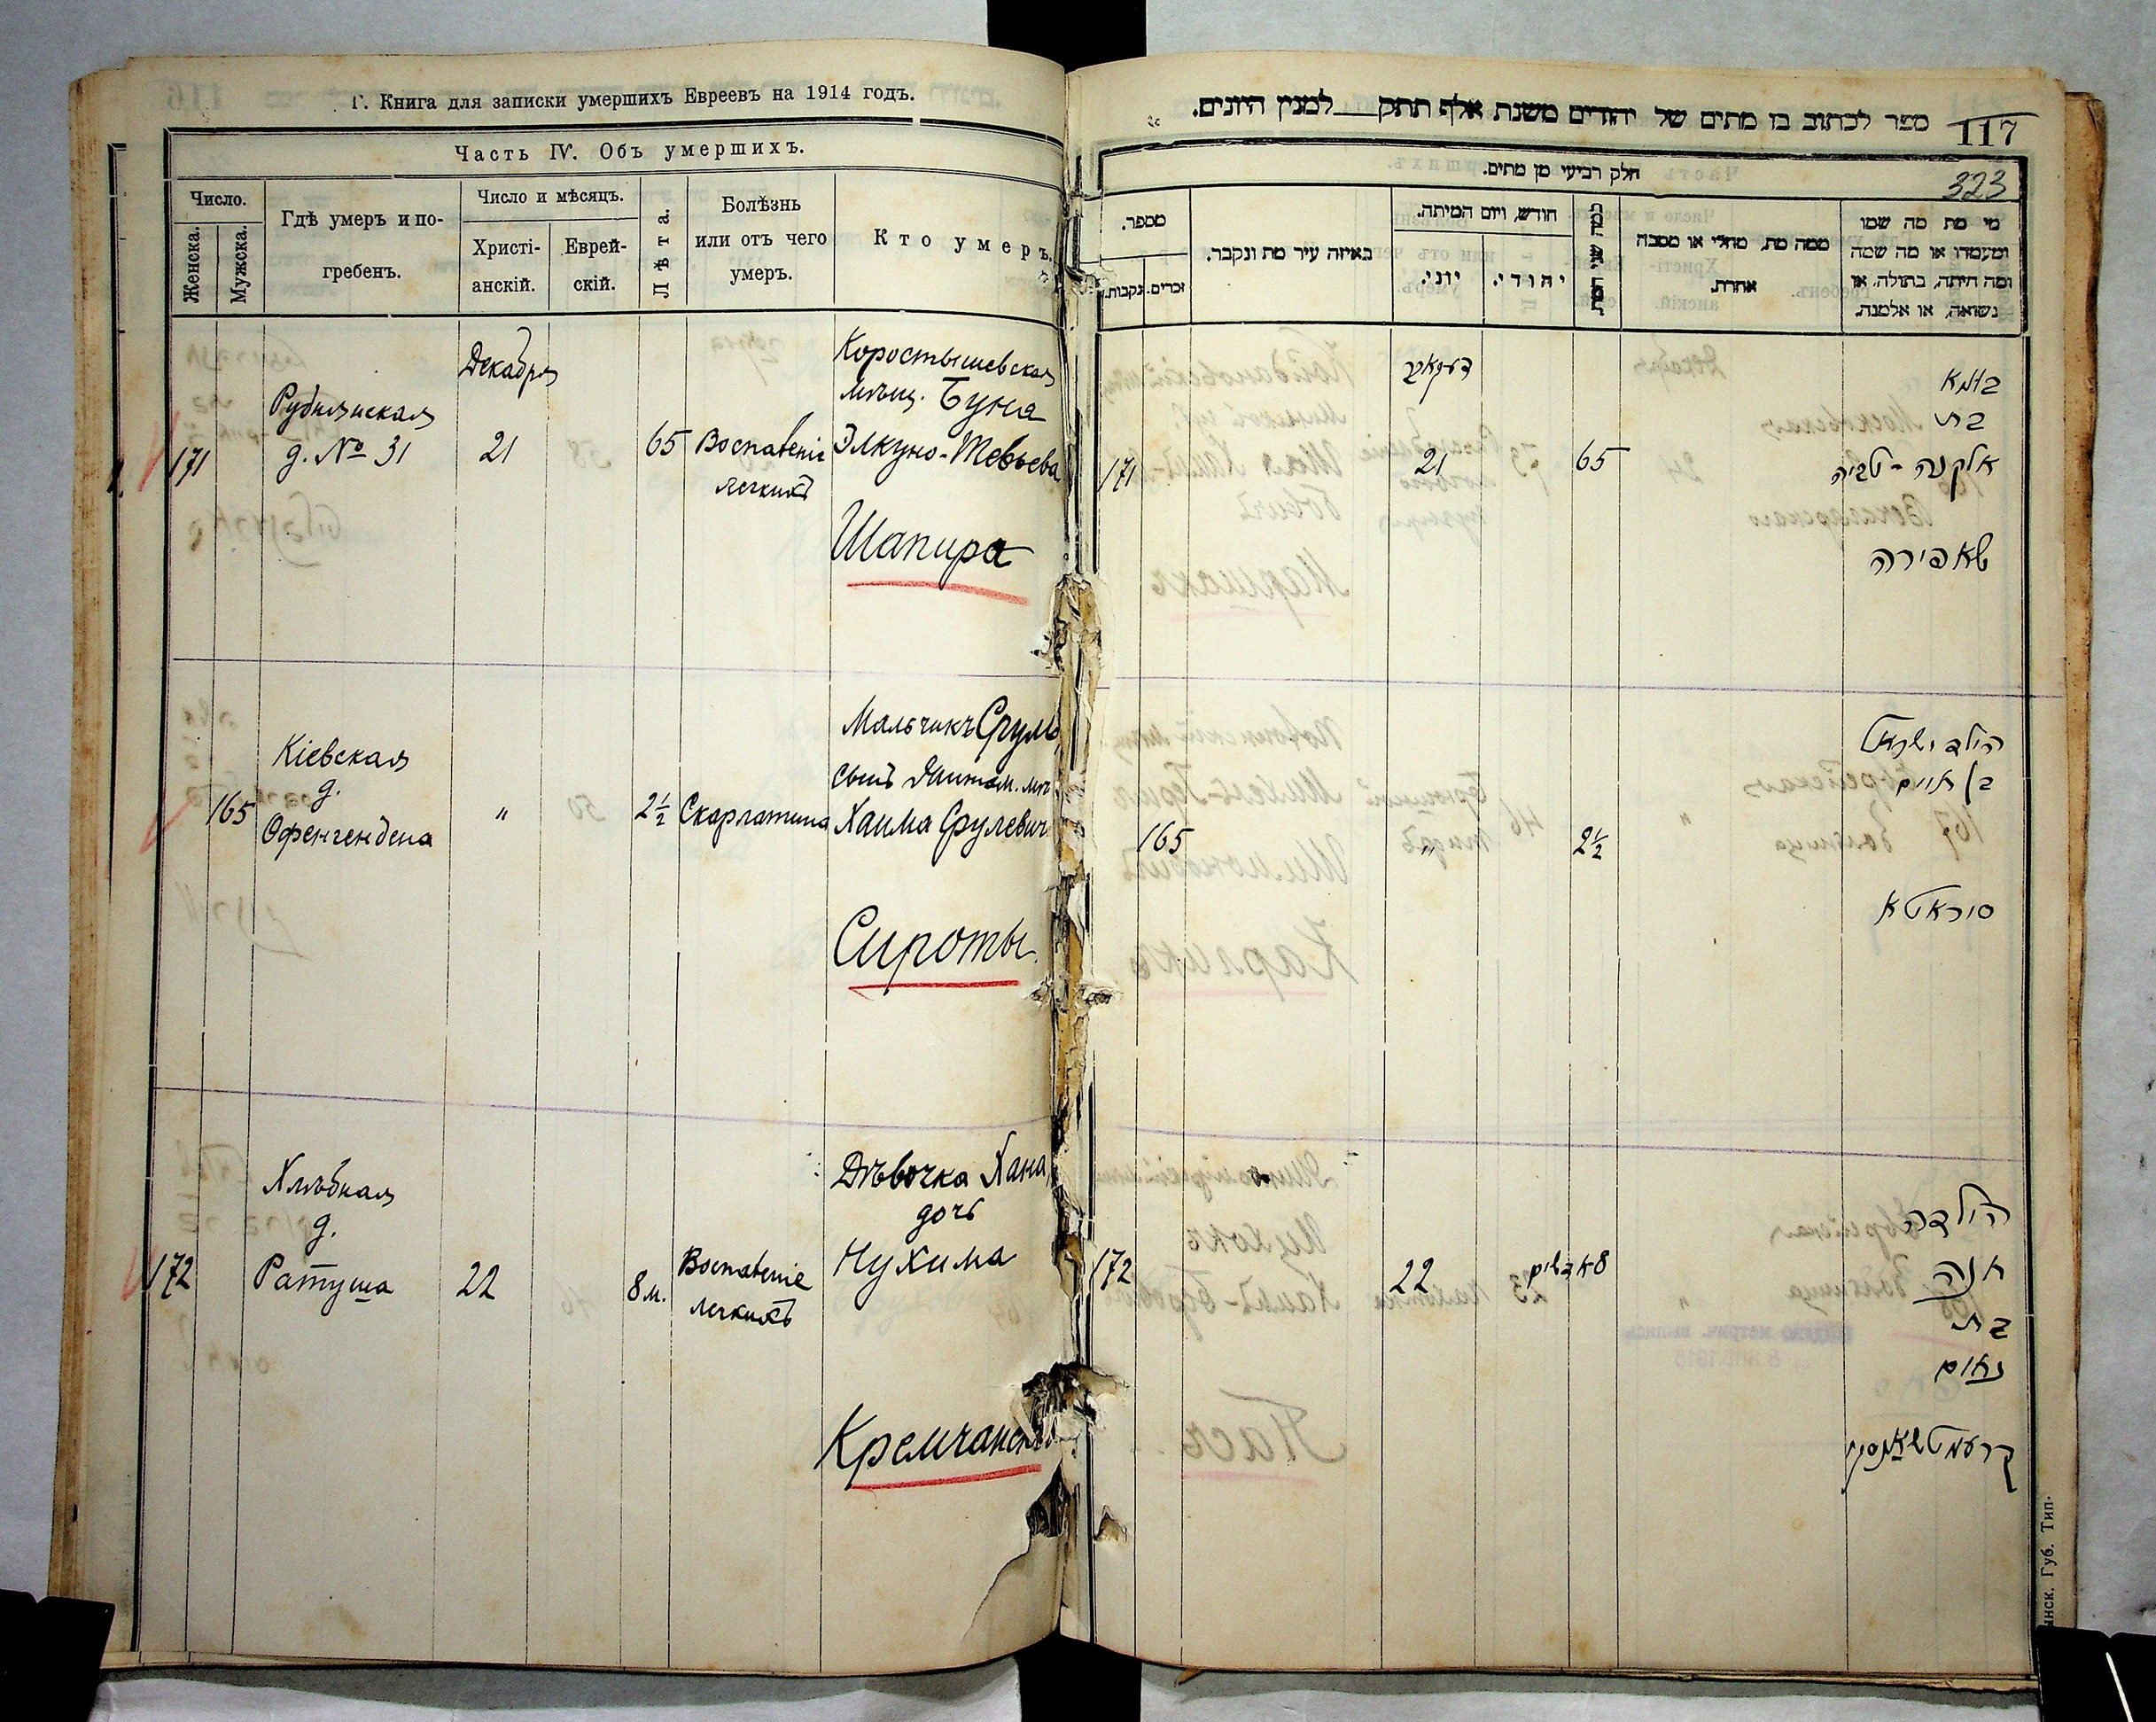 Г. Книга для записки умершихъ Евреевъ на 1914 годъ.
Часть IV. Объ умершихъ.
Число.
Женска.
Мужска.
Гдѣ умеръ и по-
гребенъ.
Число и мѣсяцъ.
Христі-
анскій.
Еврей-
скій.
Лѣта.
Болѣзнь
или отъ чего
умеръ.
Кто умеръ.
171
Рубилинская
д. № 31
Декабря
21
65
Воспаленіе
легкихъ
Коростышевская
мѣщ. Буня
Элкуно-Тевьева
Шапира
165
Кіевская
д.
Офенгендена
"
2½
Скарлатина
Мальчикъ Сруль
сынъ Житом. мѣщ
Хаима Срулевич
Сироты
172
Хлѣбная
д.
Ратуша
22
8 м.
Воспаленіе
легкихъ
Дѣвочка Хана
дочь
Нухима
ספר לכתוב בו מתים של יהודים משנת אלף תתק למנין היונים.
117
323
חלק רביעי מן מתים.
מספר.
נקבות.
זכרים.
באיזה עיר מת ונקבר.
חודש, ויום המיתה.
יוני.
יהודי.
כמה שני המת
ממה מת, מחלי או מסבה
אחרת.
מי מת מה שמו
ומעמדו או מה שמה
ומה היתה, בתולה, או
נשואה, או אלמנה.
171
21
65
בת
אלקנה-טביה
שאפירה
165
"
2½
הילד ישראל
בן חיים
סיראטא
172
22
8 חדשים
הילדה
חנה
בת
נחום
нск. Губ. Тип.